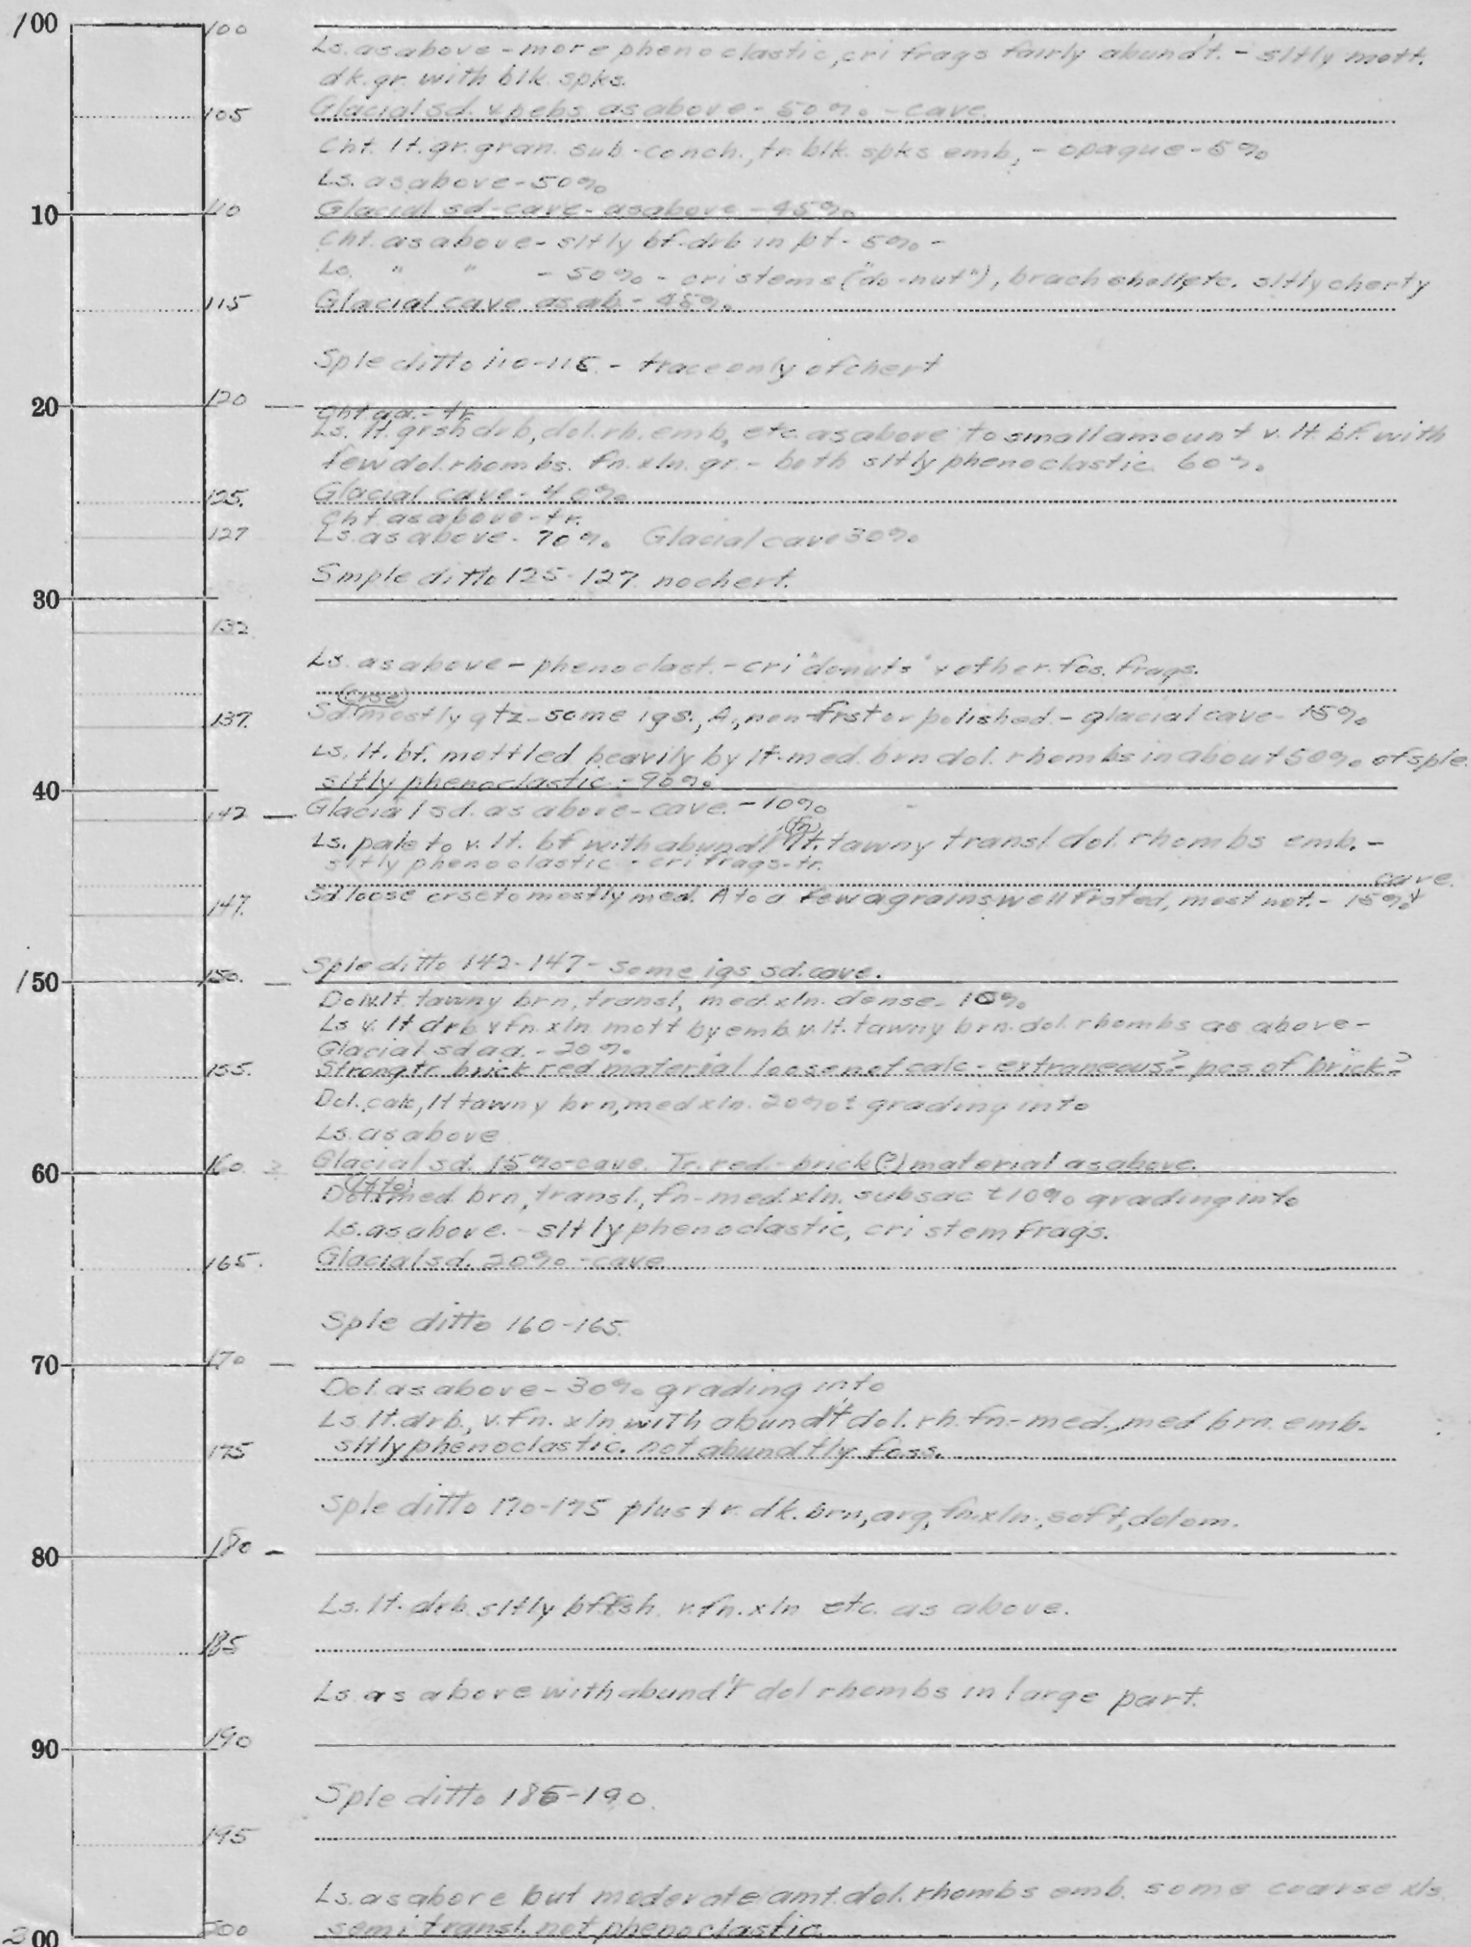 100 100
Ls. as above - more phenoclastic, cri frags fairly abund't. - sltly mott.
dk. gr. with blk. spks.
105 Glacial sd. & pebs as above - 50% - cave.
Cht. lt. gr. gran. sub-conch., tr. blk. spks emb, - opaque - 5%
Ls. as above - 50%
10 110 Glacial sd - cave - as above - 45%
Cht. as above - sltly bf-drb in pt - 5% -
Ls. " " - 50% - cri stems ("do-nut"), brach shell, etc. sltly cherty
115 Glacial cave as ab. - 45%
Sple ditto 110-115 - trace only of chert
20 120
Cht aa. - tr.
Ls. lt. grsh drb, dol. rh. emb, etc. as above to small amount v. lt. bf. with
few dol. rhombs. fn. xln. gr. - both sltly phenoclastic 60%
125. Glacial cave - 40%
Cht as above - tr.
127 Ls. as above - 70% Glacial cave 30%
Smple ditto 125-127 no chert.
30
132
Ls. as above - phenoclast. - cri "donuts" & other fos. frags.
(crse)
137. Sd. mostly qtz - some igs., A, non frst or polished - glacial cave - 15%
Ls. lt. bf. mottled heavily by lt-med. brn dol. rhombs in about 50% of sple.
sltly phenoclastic - 90%
40
142 Glacial sd. as above - cave. - 10%
(fn)
Ls. pale to v. lt. bf with abundt lt. tawny transl dol. rhombs emb. -
sltly phenoclastic - cri frags - tr.
cave.
147. Sd loose crse to mostly med. A to a few a grains well frsted, most not. - 15%
150 150. Sple ditto 142-147 - some igs sd. cave.
Dol v. lt. tawny brn, transl, med. xln. dense - 10%
Ls v. lt drb vfn. xln mott by emb v. lt. tawny brn. dol. rhombs as above -
Glacial sd aa. - 20%
155. Strong tr. brick red material loose not calc - extraneous? - pcs of brick?
Dol, calc, lt tawny brn, med xln. 20%± grading into
Ls. as above
60 160. Glacial sd. 15% - cave. Tr. red - brick (?) material as above.
(lt to)
Dol. med. brn, transl., fn-med. xln. subsac ±10% grading into
Ls. as above. - sltly phenoclastic, cri stem frags.
165. Glacial sd. 20% - cave
Sple ditto 160-165.
70 170
Dol. as above - 30% grading into
Ls. lt. drb, v. fn. xln with abundt dol. rh. fn-med., med brn. emb.
175 sltly phenoclastic. not abundtly foss.
Sple ditto 170-175 plus tr. dk. brn, arg, fn. xln., soft, dolom.
80 180
Ls. lt. drb. sltly bffsh. v. fn. xln etc. as above.
185
Ls as above with abund't dol rhombs in large part.
90 190
Sple ditto 185-190.
195
Ls. as above but moderate amt. dol. rhombs emb. some coarse xls.
200 200 semi transl. not phenoclastic.